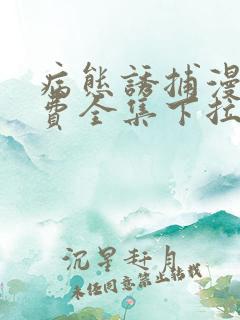 病態誘捕漫
費全集下拉
沉星赶月
未经同意禁止转载